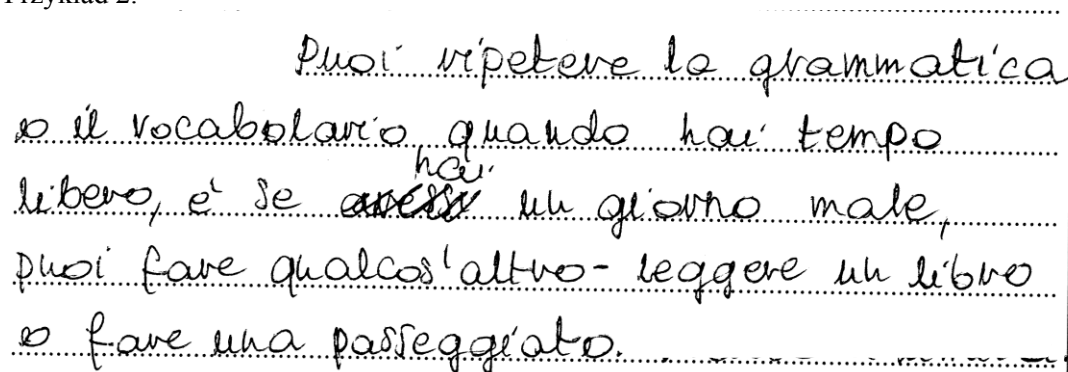 Przykład 2.
Puoi ripetere la grammatica
o il vocabolario quando hai tempo
hai
libero, e se un giorno male,
puoi fare qualcos'altro - leggere un libro
o fare una passeggiato.